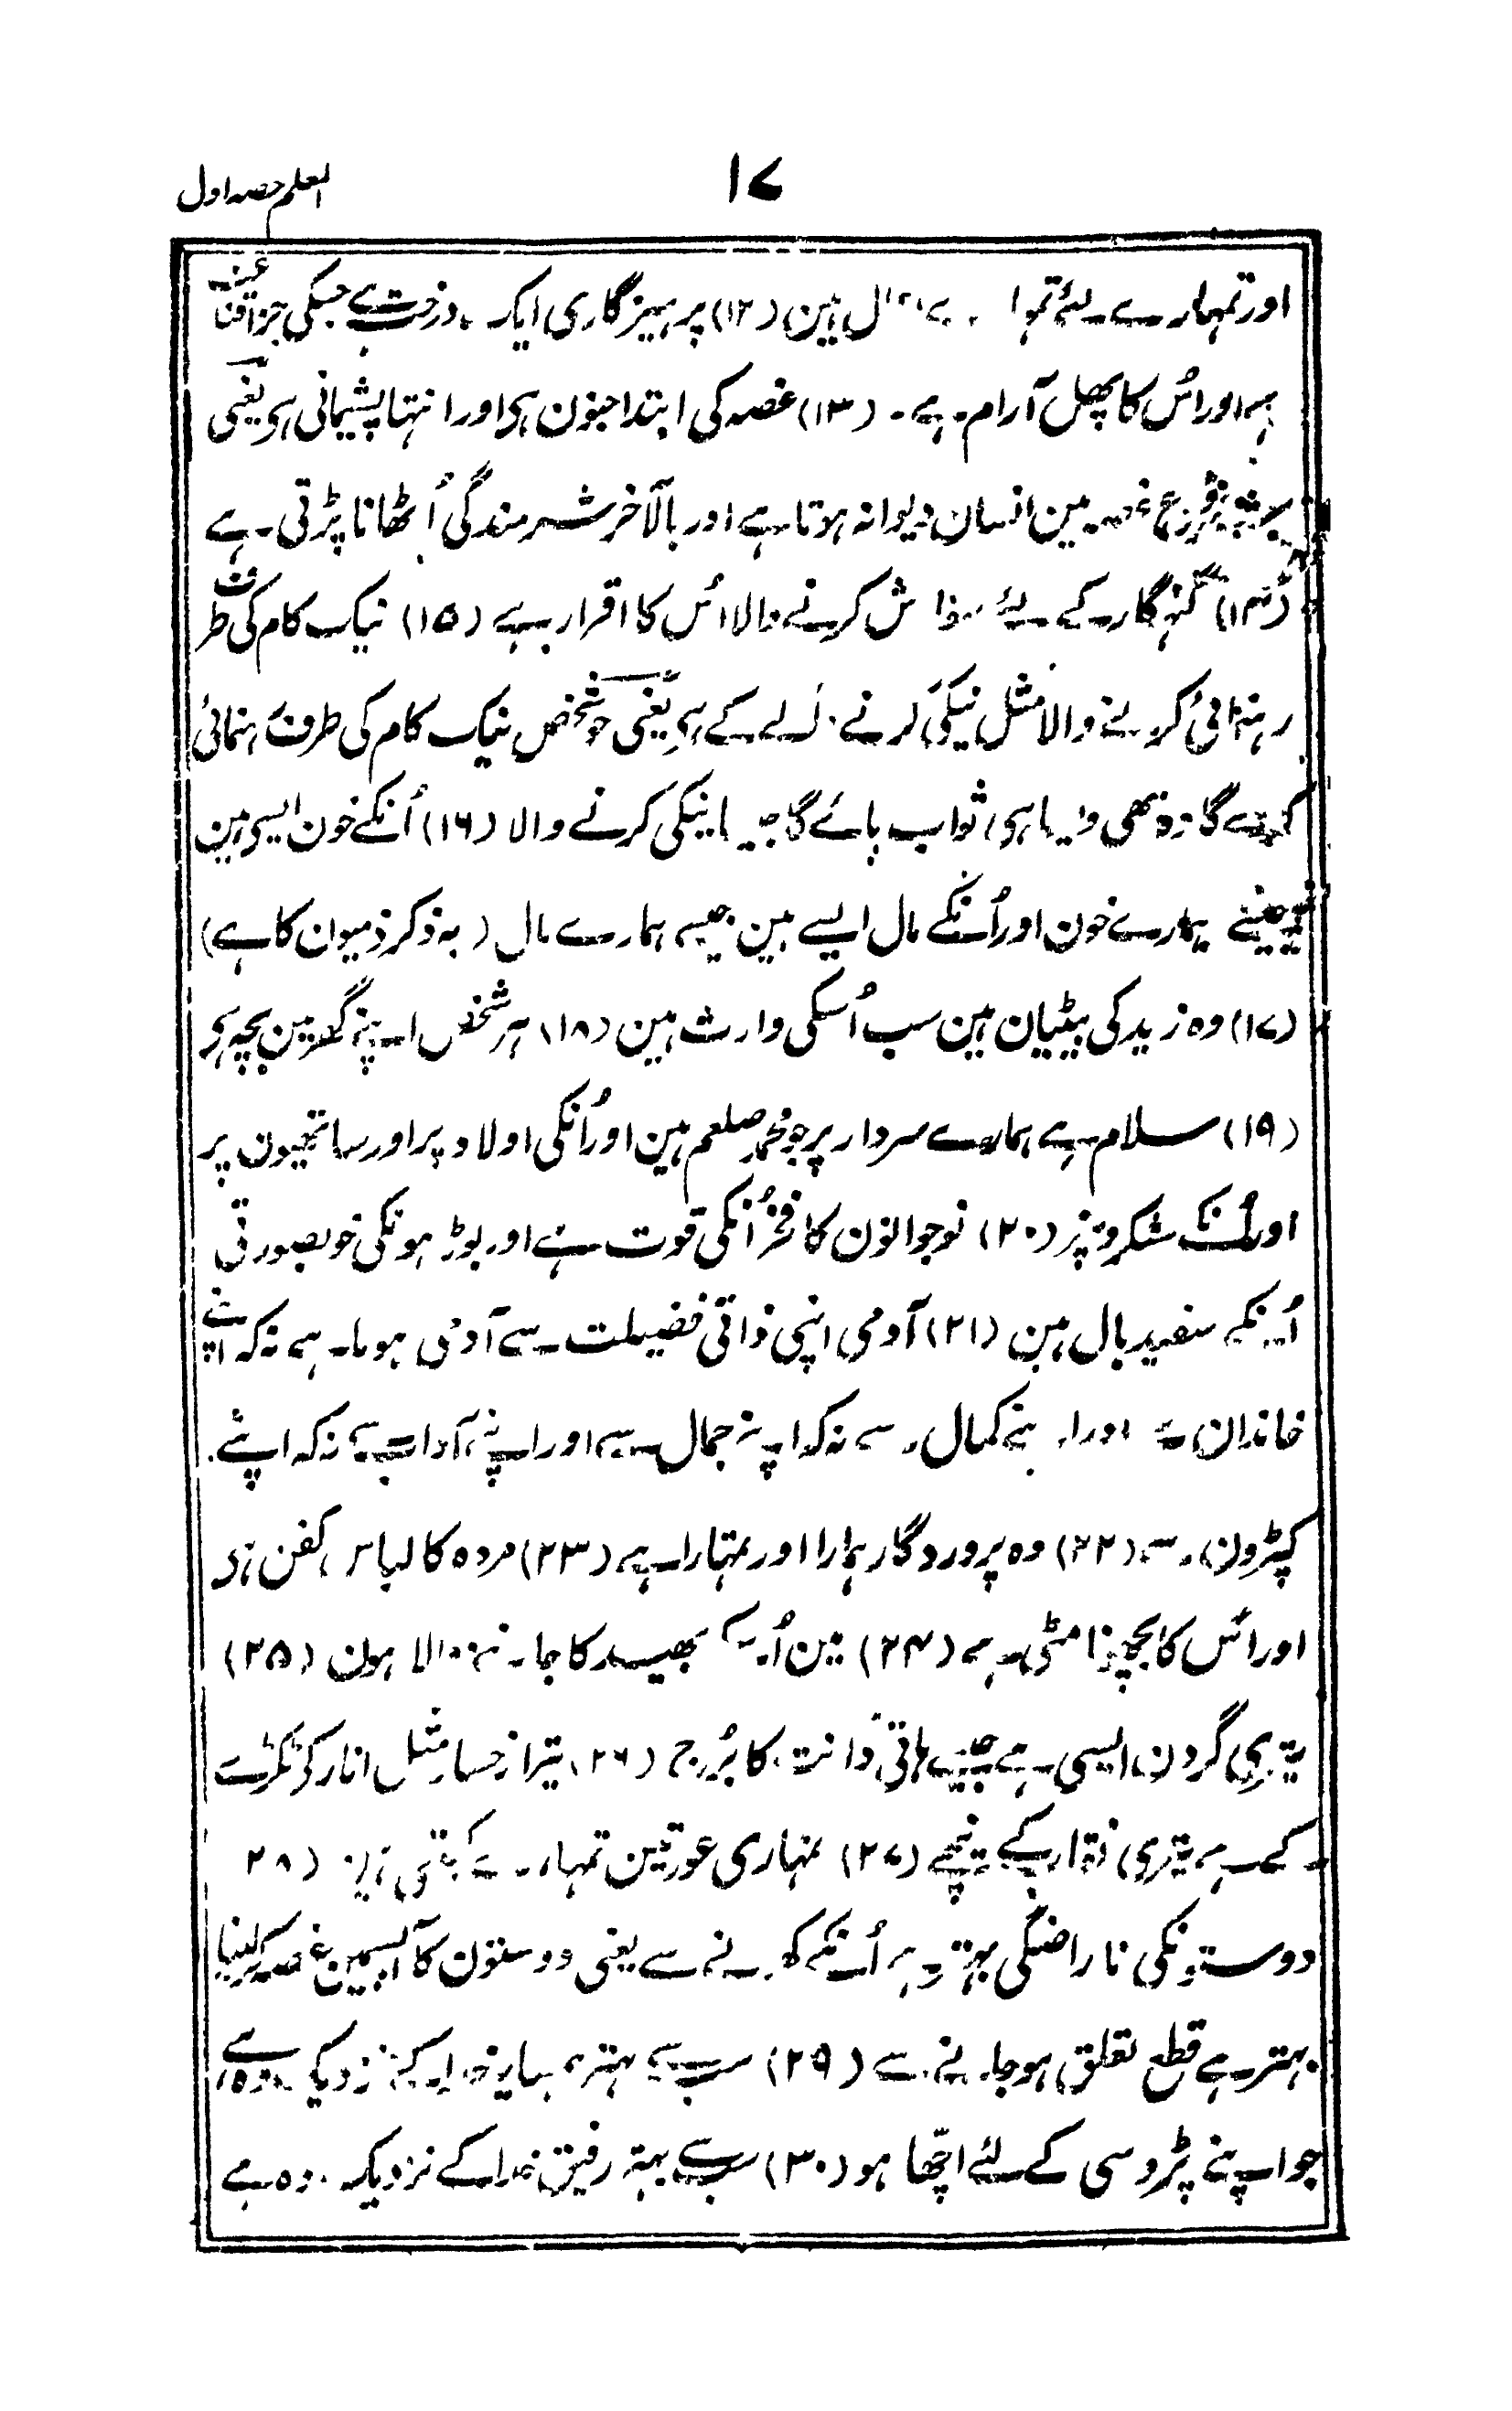 ۱۷
المعلم حصہ اول
اور تمہارے لئے تمہا ل ہین (۱۲) پرہیزگاری ایک درخت ہے جسکی جڑ قناعت
ہے اور اُس کا پھل آرام ہے ۔ (۱۳) غصہ کی ابتدا جنون ہی اور انتہا پشیمانی ہی یعنی
شروع غصہ مین انسان دیوانہ ہوتا ہے اور بالآخر شرمندگی اُٹھانا پڑتی ہے
(۱۴) گنہگار کے لئے کرنے والا اُس کا اقرار ہے (۱۵) نیک کام کی طرف
رہنمائی کرنے والا مثل نیکی کرنے والے کے ہی یعنی جو شخص نیک کام کی طرف رہنمائی
کرے گا وہ بھی ویسا ہی ثواب پائے گا جیسا نیکی کرنے والا (۱۶) اُنکے خون ایسی ہین
جیسے ہمارے خون اور اُنکے مال ایسے ہین جیسے ہمارے مال (یہ ذکر ذمیون کا ہے)
(۱۷) وہ زید کی بیٹیان ہین سب اُسکی وارث ہین (۱۸) ہر شخص اپنے گھر مین بچہ ہی
(۱۹) سلام ہے ہمارے سردار پر جو محمد صلعم ہین اور اُنکی اولاد پر اور ساتھیون پر
اور اُنکے لشکرون پر (۲۰) نوجوانون کا فخر اُنکی قوت ہے اور بوڑہونکی خوبصورتی
اُنکے سفید بال ہین (۲۱) آدمی اپنی ذاتی فضیلت سے آدمی ہوتا ہے نہ کہ اپنے
خاندان سے اور اپنے کمال سے نہ کہ اپنے جمال سے اور اپنے آداب سے نہ کہ اپنے
کپڑون سے (۲۲) وہ پروردگار ہمارا اور تمہارا ہے (۲۳) مردہ کا لباس کفن ہی
اور اُس کا بچھونا مٹی ہے (۲۴) مین اُسکے بھید کا جاننے والا ہون (۲۵)
تیری گردن ایسی ہے جیسے ہاتی دانت کا بُرج (۲۶) تیرا رخسار مثل انار کے ٹکڑے
کے ہے تیری نقاب کے نیچے (۲۷) تمہاری عورتین تمہارے کھیتی ہین (۲۸
دوستونکی ناراضگی بہتر ہے اُنکے کھونے سے یعنی دوستون کا آپسمین غصہ کرلینا
بہتر ہے قطع تعلق ہوجانے سے (۲۹) سب سے بہتر ہمسایہ خدا کے نزدیک وہ ہے
جو اپنے پڑوسی کے لئے اچھا ہو (۳۰) سب سے بہتر رفیق خدا کے نزدیک وہ ہے